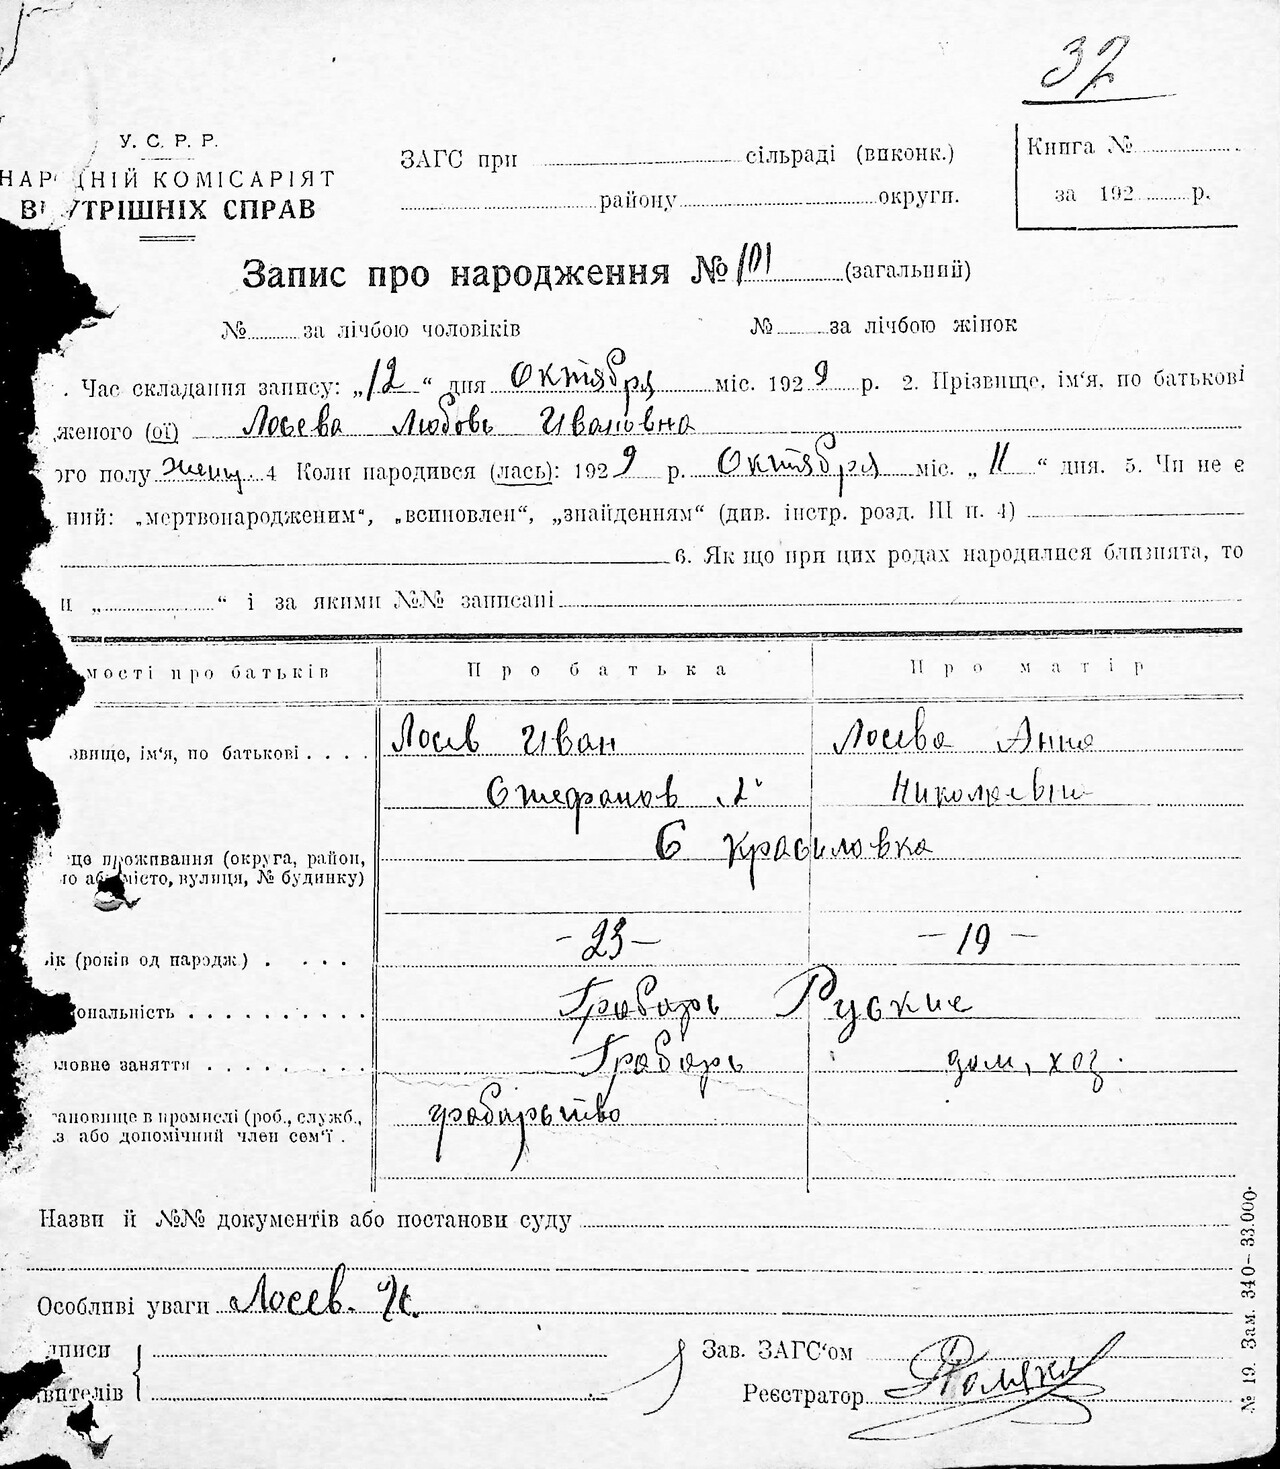 32
У. С. Р. Р.
НАР ДНІЙ КОМІСАРІЯТ
В УТРІШНІХ СПРАВ
ЗАГС при сільраді (виконк.)
району округи.
Книга №
за 192 р.
Запис про народження № 101 (загальний)
№ за лічбою чоловіків № за лічбою жінок
. Час складання запису: „12“ дня Октября міс. 1929 р. 2. Прізвище, ім'я, по батькові
женого (ої) Лосева Любовь Ивановна
ого полу женщ. 4 Коли народився (лась): 1929 р. Октября міс. „11“ дня. 5. Чи не є
ний: „мертвонародженим“, „всиновлен“, „знайденням“ (див. інстр. розд. III п. 4)
6. Як що при цих родах народилися близнята, то
и „ “ і за якими №№ записані
мості про батьків Про батька Про матір
звище, ім'я, по батькові . . . . Лосев Иван Лосева Анна
Стефанов Николаевна
це проживання (округа, район, С Красиловка
ю або місто, вулиця, № будинку)
ік (років од народж) . . . . -23- -19-
ональність . . . . . . . . . . Грабарь Руские
ловне заняття . . . . . . . . Грабарь дом, хоз.
ановище в промислі (роб., служб., грабарьтво
з або допомічний член сем'ї .
Назви й №№ документів або постанови суду
Особливі уваги Лосев. И.
дписи
вителів
Зав. ЗАГС'ом
Реєстратор
№ 19. Зам. 340—33.000.